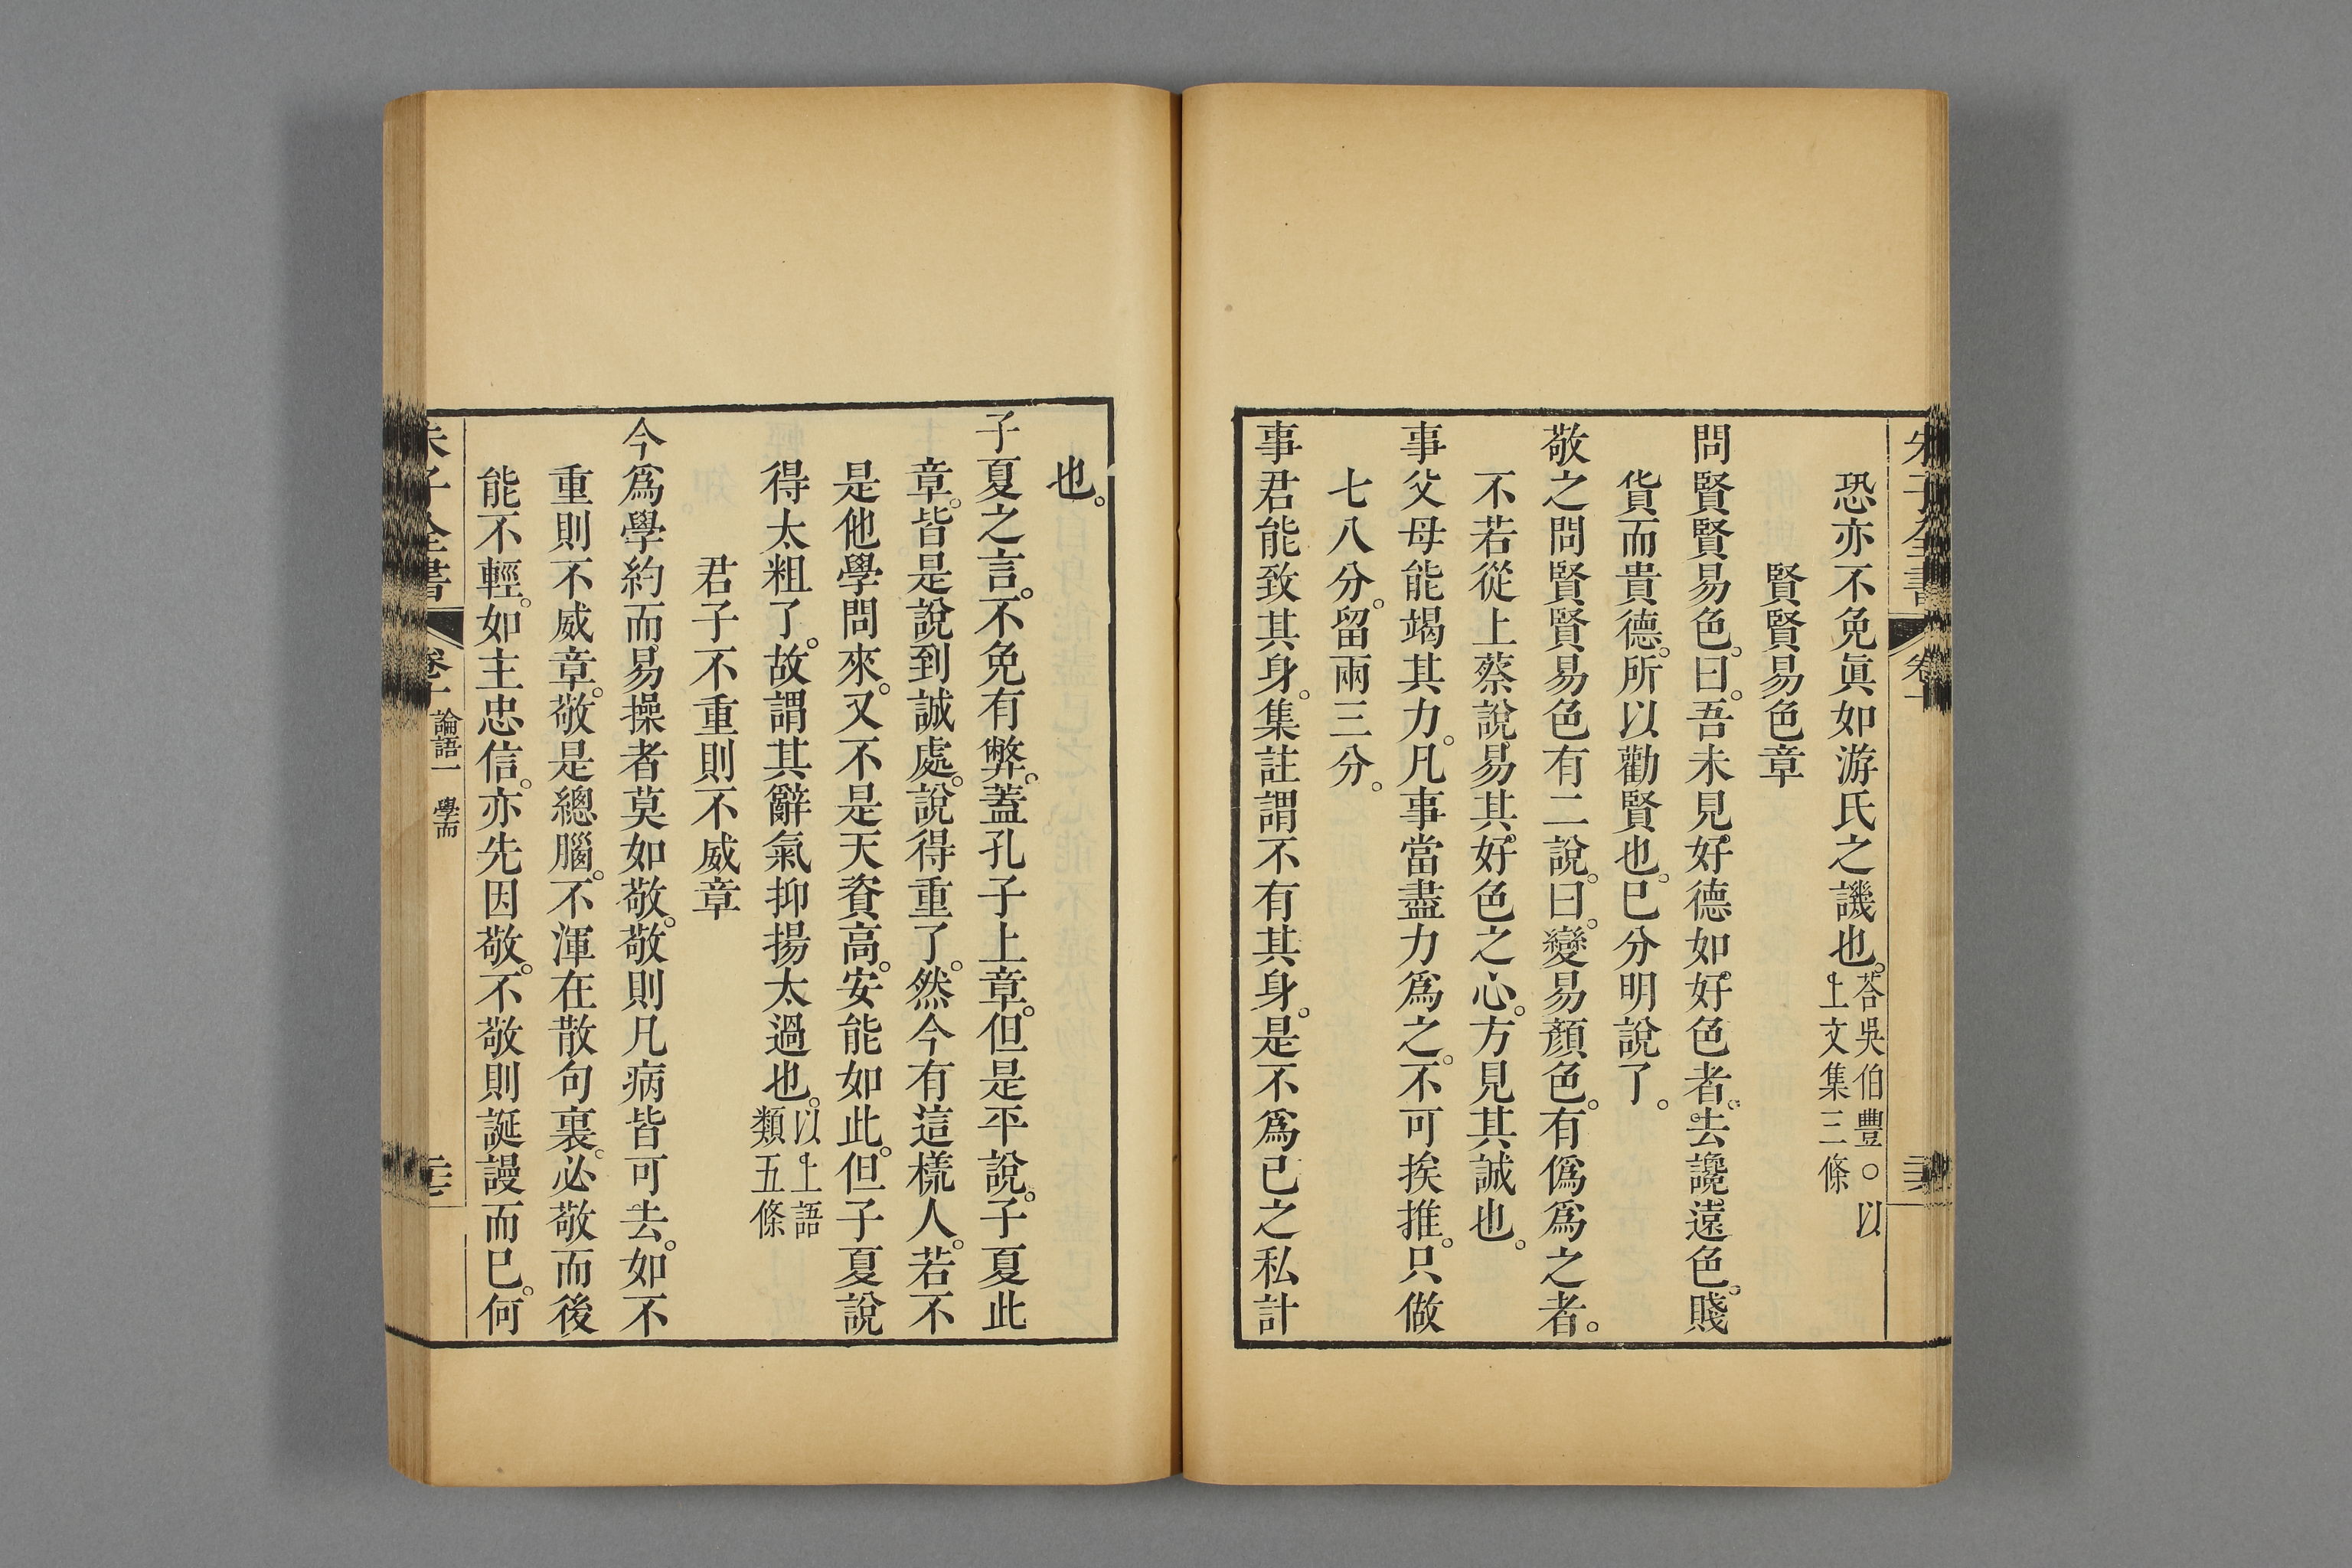 恐亦不免眞如游氏之譏也。荅吳伯豐○以
上文集三條
賢賢易色章
問賢賢易色。曰。吾未見好德如好色者。去讒遠色。賤
貨而貴德。所以勸賢也。已分明說了。
敬之問賢賢易色有二說。曰。變易顏色。有僞爲之者。
不若從上蔡說。易其好色之心。方見其誠也。
事父母能竭其力。凡事當盡力爲之。不可挨推。只做
七八分。留兩三分。
事君能致其身。集註謂不有其身。是不爲已之私計
也。
子夏之言。不免有弊。蓋孔子上章。但是平說。子夏此
章。皆是說到誠處。說得重了。然今有這樣人。若不
是他學問來。又不是天資高。安能如此。但子夏說
得太粗了。故謂其辭氣抑揚太過也。以上語
類五條
君子不重則不威章
今爲學約而易操者莫如敬。敬則凡病皆可去。如不
重則不威章。敬是總腦。不渾在散句裏。必敬而後
能不輕。如主忠信。亦先因敬。不敬則誕謾而已。何
朱子全書
卷十
論語一 學而